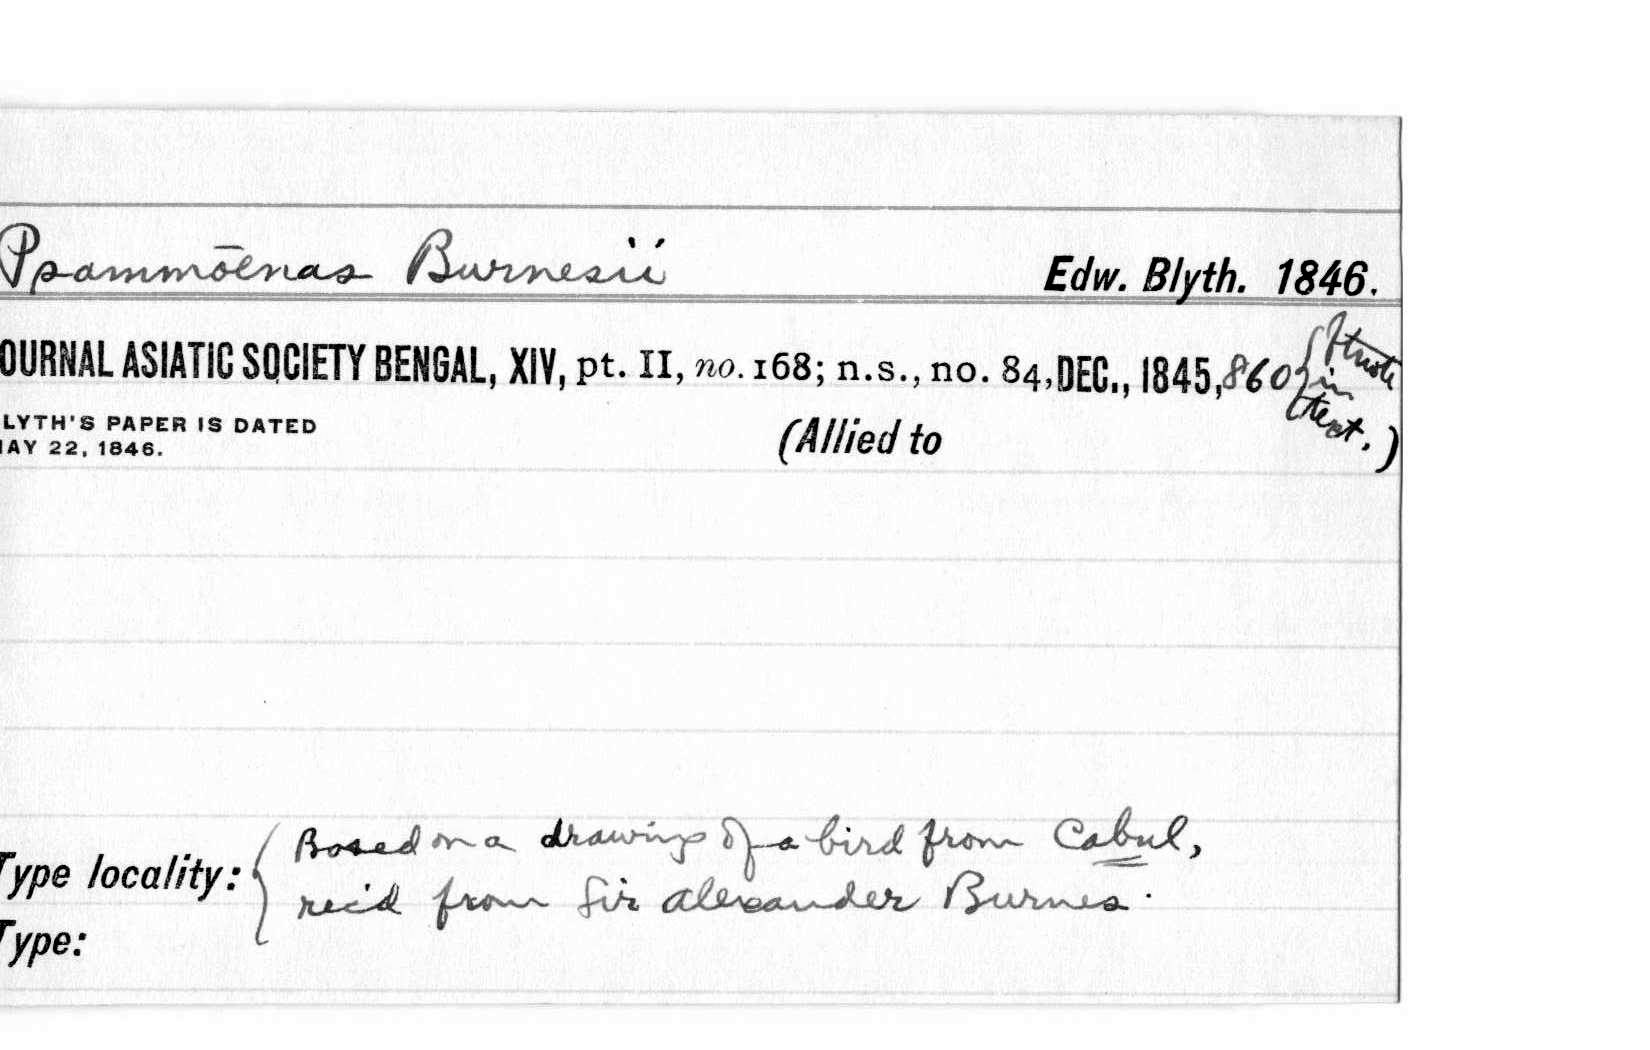 Psammōenas Burnesii Edw. Blyth. 1846.
OURNAL ASIATIC SOCIETY BENGAL, XIV, pt. II, no. 168; n.s., no. 84, DEC., 1845, 860
in
text.)
LYTH'S PAPER IS DATED (Allied to
AY 22, 1846.
Based on a drawing of a bird from Cabul,
Type locality:
rec'd from Sir Alexander Burnes.
Type: